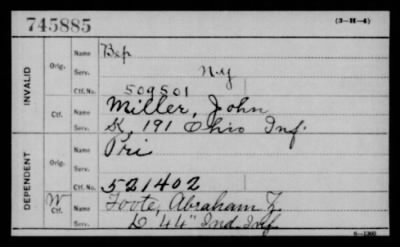 745885 (3-H-4)
INVALID
Orig.
Name Bep
Serv. N.Y
Ctf. No. 509501
Ctf.
Miller, John
K, 191 Ohio Inf.
DEPENDENT
Orig.
Name Pri
Serv.
Ctf. No. 521402
W Ctf.
Foote, Abraham Z.
D "44" Ind. Inf.